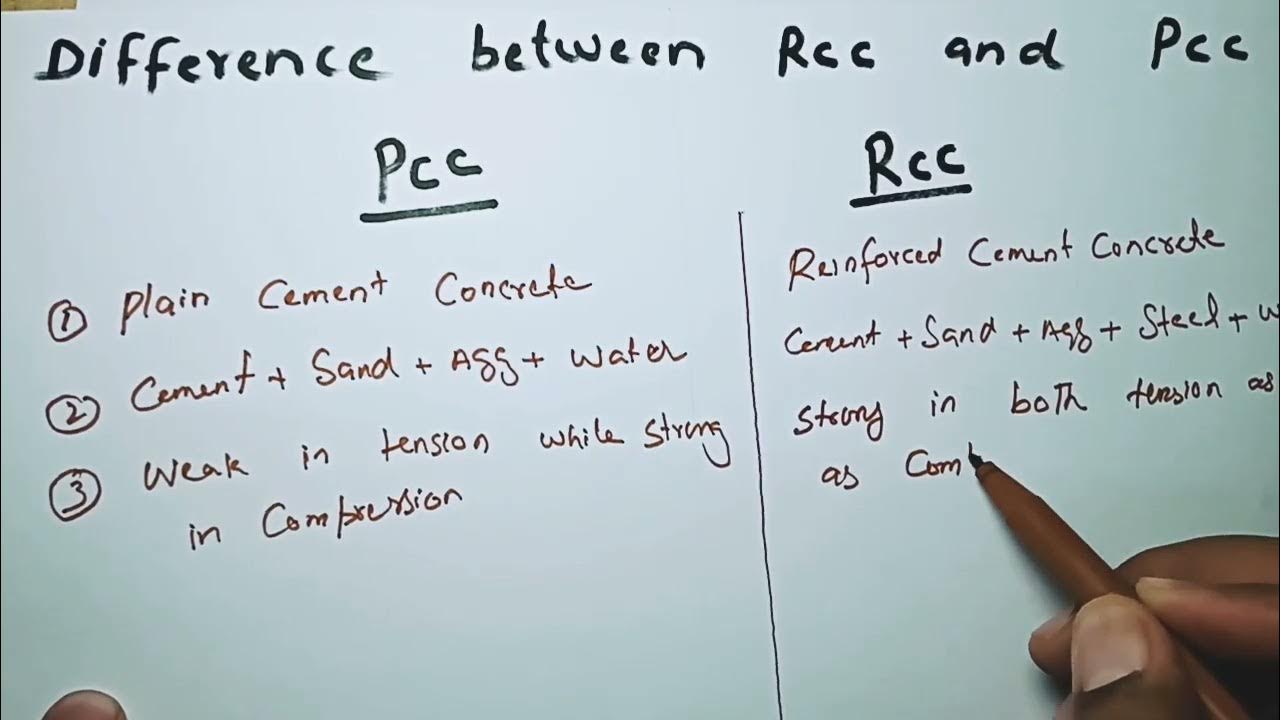 Difference between Rcc and Pcc
Pcc
① Plain Cement Concrete
② Cement + Sand + Agg + Water
③ Weak in tension while Strong
in Compression
Rcc
Reinforced Cement Concrete
Cement + Sand + Agg + Steel + W
Strong in both tension as
as Com